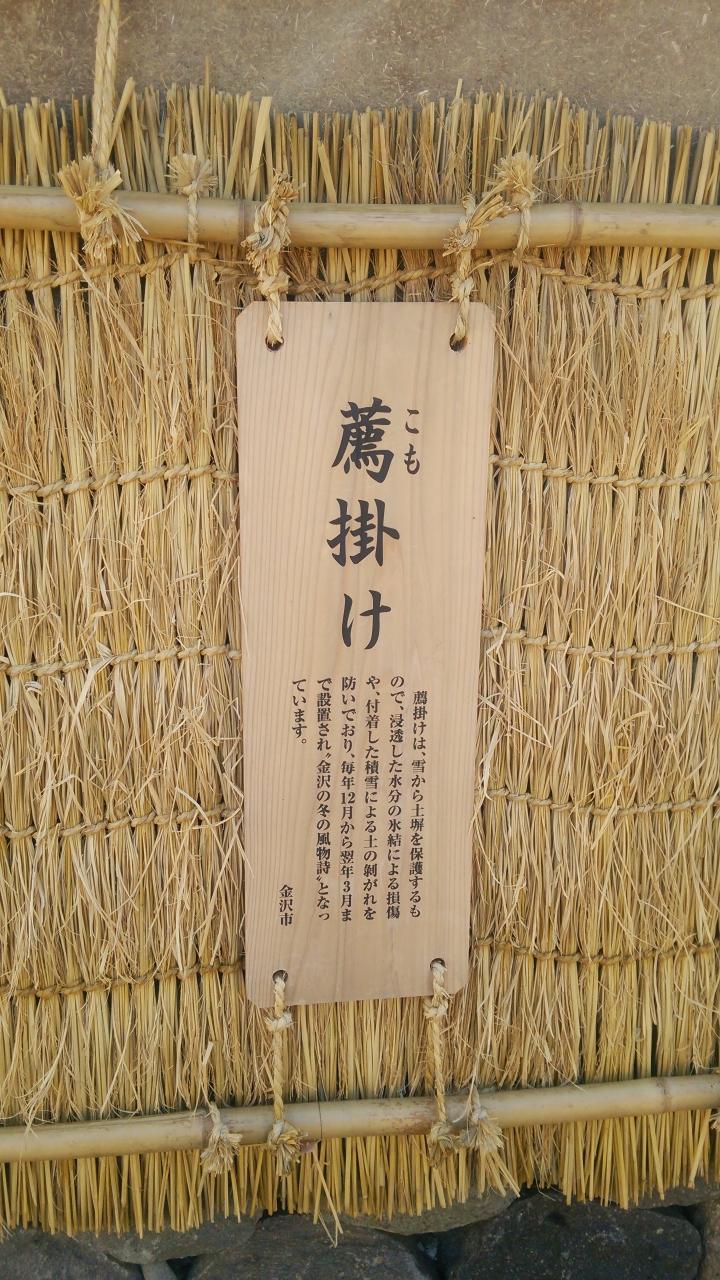 薦掛け
こも
薦掛けは、雪から土塀を保護するも
ので、浸透した水分の氷結による損傷
や、付着した積雪による土の剝がれを
防いでおり、毎年12月から翌年3月ま
で設置され〝金沢の冬の風物詩〟となっ
ています。
金沢市